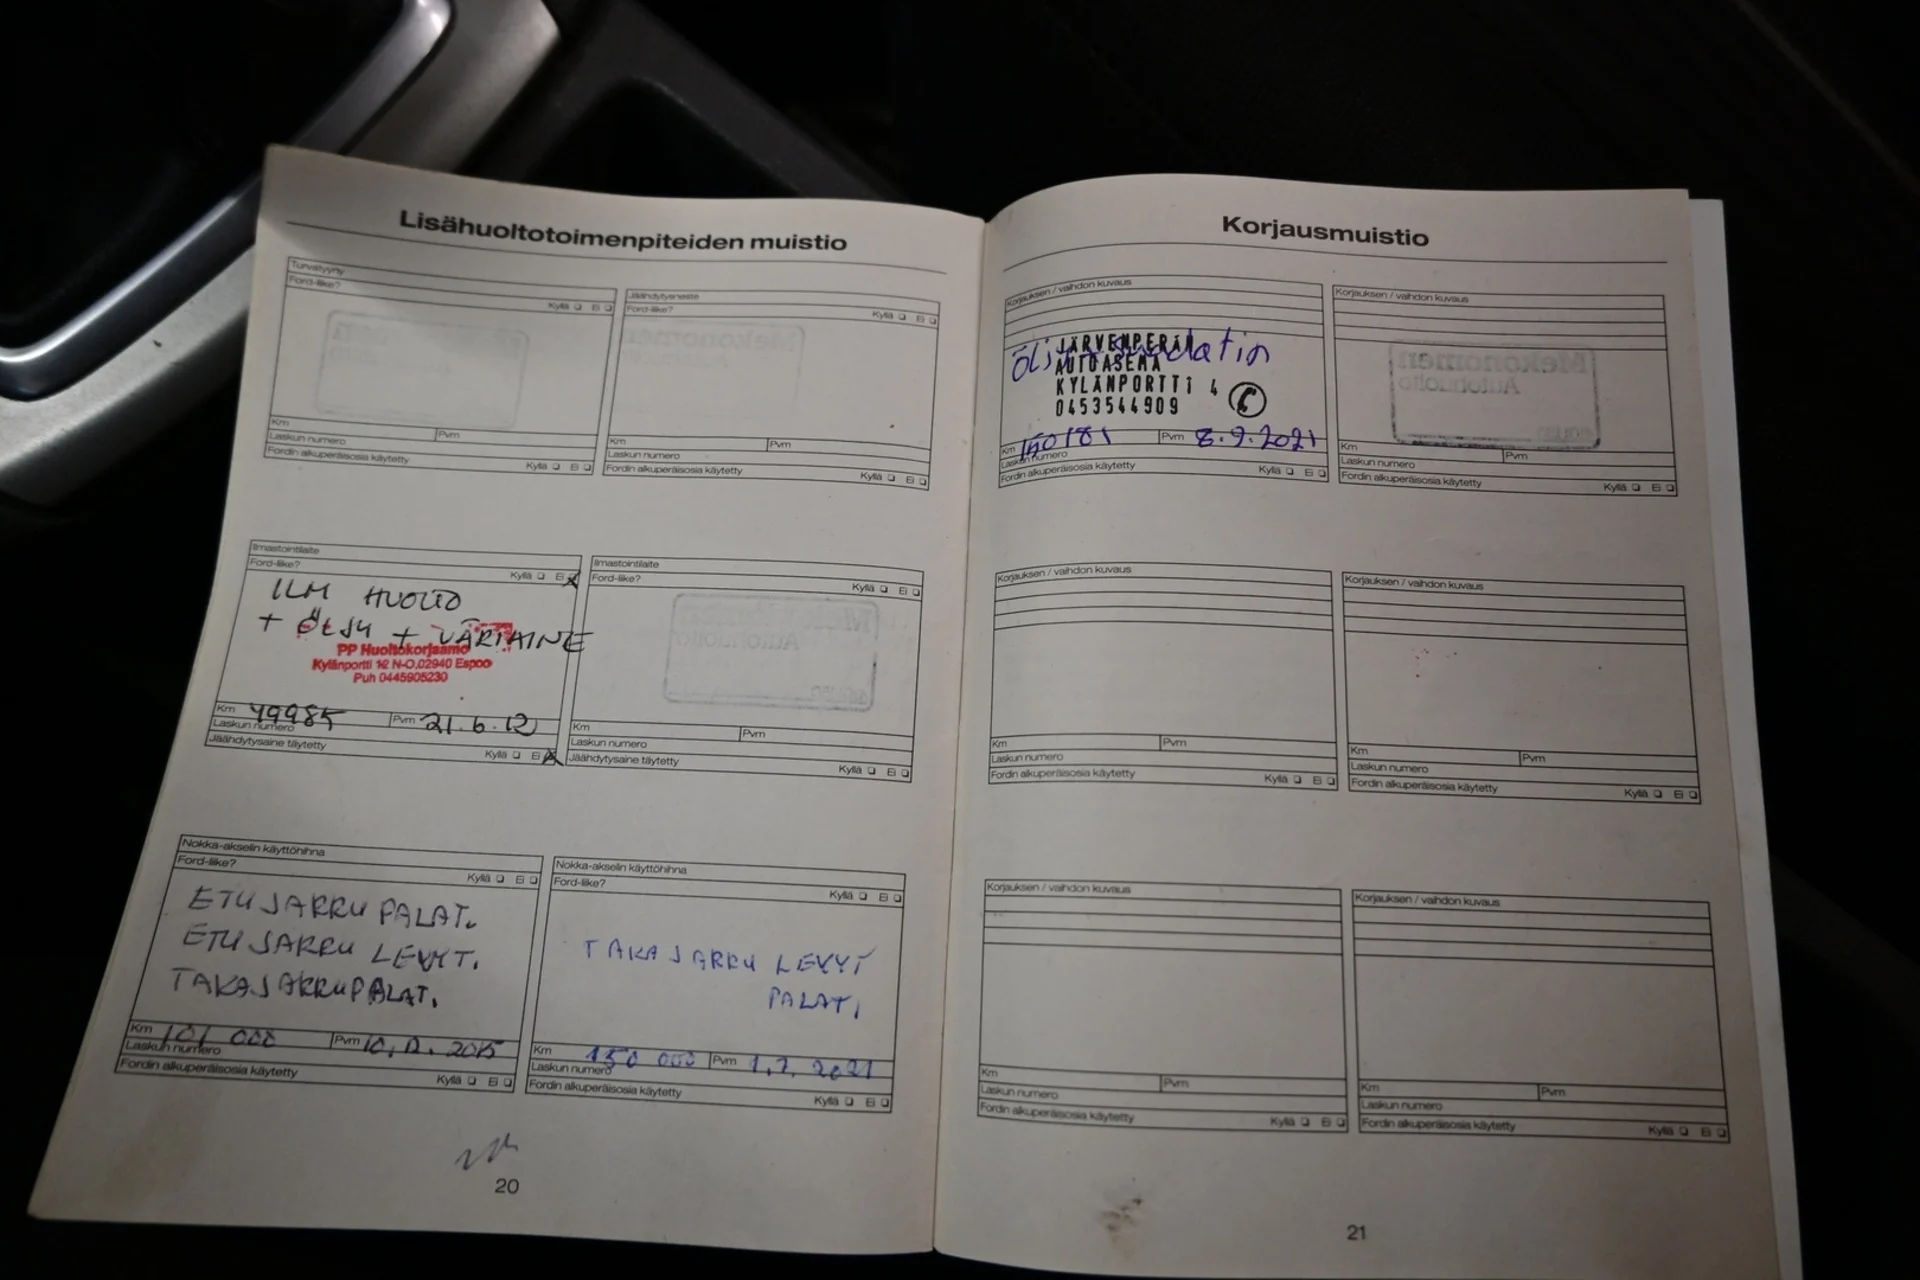 Lisähuoltotoimenpiteiden muistio
Turvatyyny
Ford-liike?
Kyllä ❏ Ei ❏
Km
Pvm
Laskun numero
Fordin alkuperäisosia käytetty
Kyllä ❏ Ei ❏
Jäähdytysneste
Ford-liike?
Kyllä ❏ Ei ❏
Km
Pvm
Laskun numero
Fordin alkuperäisosia käytetty
Kyllä ❏ Ei ❏
Ilmastointilaite
Ford-liike?
Kyllä ❏ Ei ❏
ILM HUOLTO
+ ÖLJY + VÄRIAINE
PP Huoltokorjaamo
Kylänportti 12 N-O,02940 Espoo
Puh 0445905230
Km 49985
Pvm 21.6.12
Laskun numero
Jäähdytysaine täytetty
Kyllä ❏ Ei ❏
Ilmastointilaite
Ford-liike?
Kyllä ❏ Ei ❏
Km
Pvm
Laskun numero
Jäähdytysaine täytetty
Kyllä ❏ Ei ❏
Nokka-akselin käyttöhihna
Ford-liike?
Kyllä ❏ Ei ❏
ETUJARRU PALAT.
ETUJARRU LEVYT.
TAKAJARRUPALAT.
Km 101 000
Pvm 10.12.2015
Laskun numero
Fordin alkuperäisosia käytetty
Kyllä ❏ Ei ❏
Nokka-akselin käyttöhihna
Ford-liike?
Kyllä ❏ Ei ❏
TAKAJARRU LEVYT
PALAT.
Km 150 000
Pvm 1.7.2021
Laskun numero
Fordin alkuperäisosia käytetty
Kyllä ❏ Ei ❏
20
Korjausmuistio
Korjauksen / vaihdon kuvaus
JÄRVENPERÄN
AUTOASEMA
KYLÄNPORTTI 4
0453544909
Km 150181
Pvm 8.9.2021
Laskun numero
Fordin alkuperäisosia käytetty
Kyllä ❏ Ei ❏
Korjauksen / vaihdon kuvaus
Km
Pvm
Laskun numero
Fordin alkuperäisosia käytetty
Kyllä ❏ Ei ❏
Korjauksen / vaihdon kuvaus
Km
Pvm
Laskun numero
Fordin alkuperäisosia käytetty
Kyllä ❏ Ei ❏
Korjauksen / vaihdon kuvaus
Km
Pvm
Laskun numero
Fordin alkuperäisosia käytetty
Kyllä ❏ Ei ❏
Korjauksen / vaihdon kuvaus
Km
Pvm
Laskun numero
Fordin alkuperäisosia käytetty
Kyllä ❏ Ei ❏
Korjauksen / vaihdon kuvaus
Km
Pvm
Laskun numero
Fordin alkuperäisosia käytetty
Kyllä ❏ Ei ❏
21